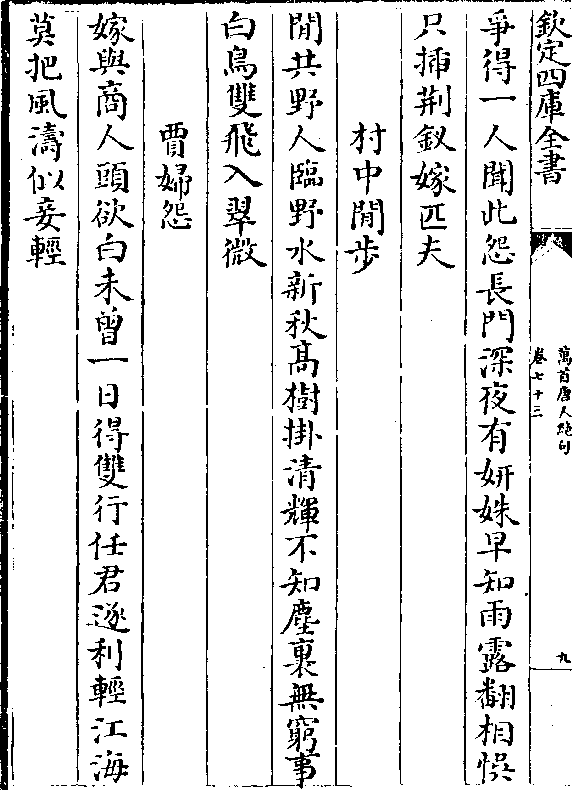 欽定四庫全書
萬首唐人絶句
卷七十三
九
爭得一人聞此怨長門深夜有妍姝早知雨露翻相悞
只插荆釵嫁匹夫
村中閒步
閒共野人臨野水新秋髙樹掛清輝不知塵裏無窮事
白鳥雙飛入翠微
賈婦怨
嫁與商人頭欲白未曾一日得雙行任君逐利輕江海
莫把風濤似妾輕